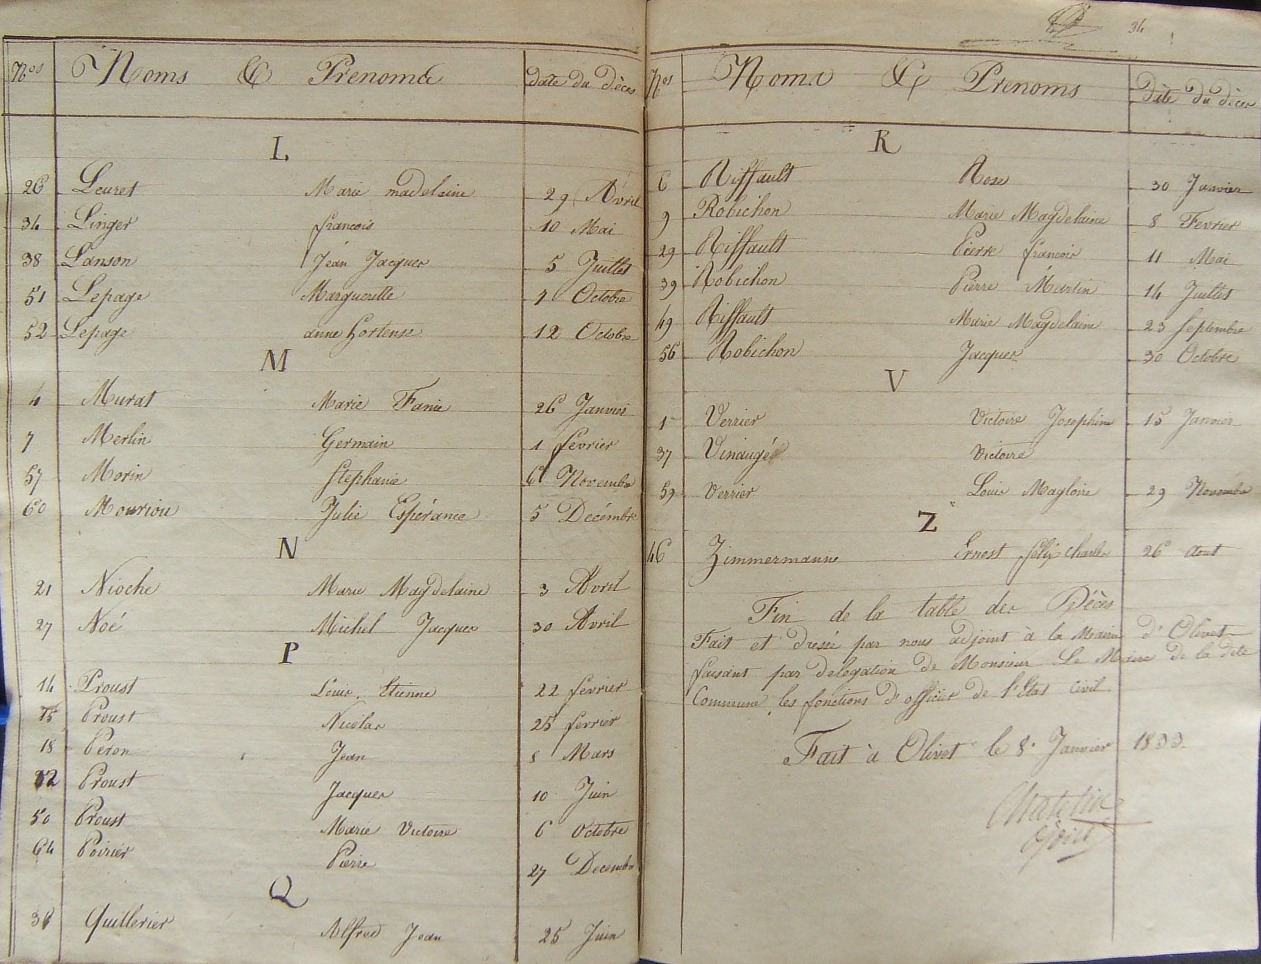 34
Nos Noms & Prenoms date du décés
L
26 Leuret Marie madelaine 29 Avril
34 Linger francois 10 Mai
38 Lanson Jéan Jacques 5 Juillet
51 Lepage Marguerite 7 Octobre
52 Lepage anne hortense 12 Octobre
M
4 Murat Marie Fanie 26 Janvier
7 Merlin Germain 1 fevrier
57 Morin Stephanie 6 Novembre
60 Mouriou Julie Espérance 5 Decémbre
N
21 Nioche Marie Magdelaine 3 Avril
27 Noé Michel Jacques 30 Avril
P
14 Proust Louis Etienne 22 fevrier
15 Proust Nicolas 25 fevrier
18 Peron Jean 8 Mars
32 Proust Jacques 10 Juin
50 Proust Marie Victoire 6 Octobre
64 Poirier Pierre 27 Decembre
Q
Quillerier Alfred Jean 25 Juin
Nos Noms & Prenoms Date du décés
R
6 Riffault Rose 30 Janvier
9 Robichon Marie Magdelaine 8 Fevrier
29 Riffault Pierre francois 11 Mai
39 Robichon Pierre Martin 14 Juillet
49 Riffault Marie Magdelaine 23 Septembre
56 Robichon Jacques 30 Octobre
V
1 Verrier Victoire Josephine 15 Janvier
37 Vinaugé Victoire
59 Verrier Louis Magloire 29 Novembre
Z
46 Zimmermanne Ernest félix Charles 26 Aout
Fin de la table des Décès
Fait et dressé par nous adjoint à la Mairie d'Olivet
faisant par delegation de Monsieur Le Maire de la dite
Commune les fonctions d'officier de l'Etat Civil
Fait à Olivet le 8 Janvier 1833
adjoint